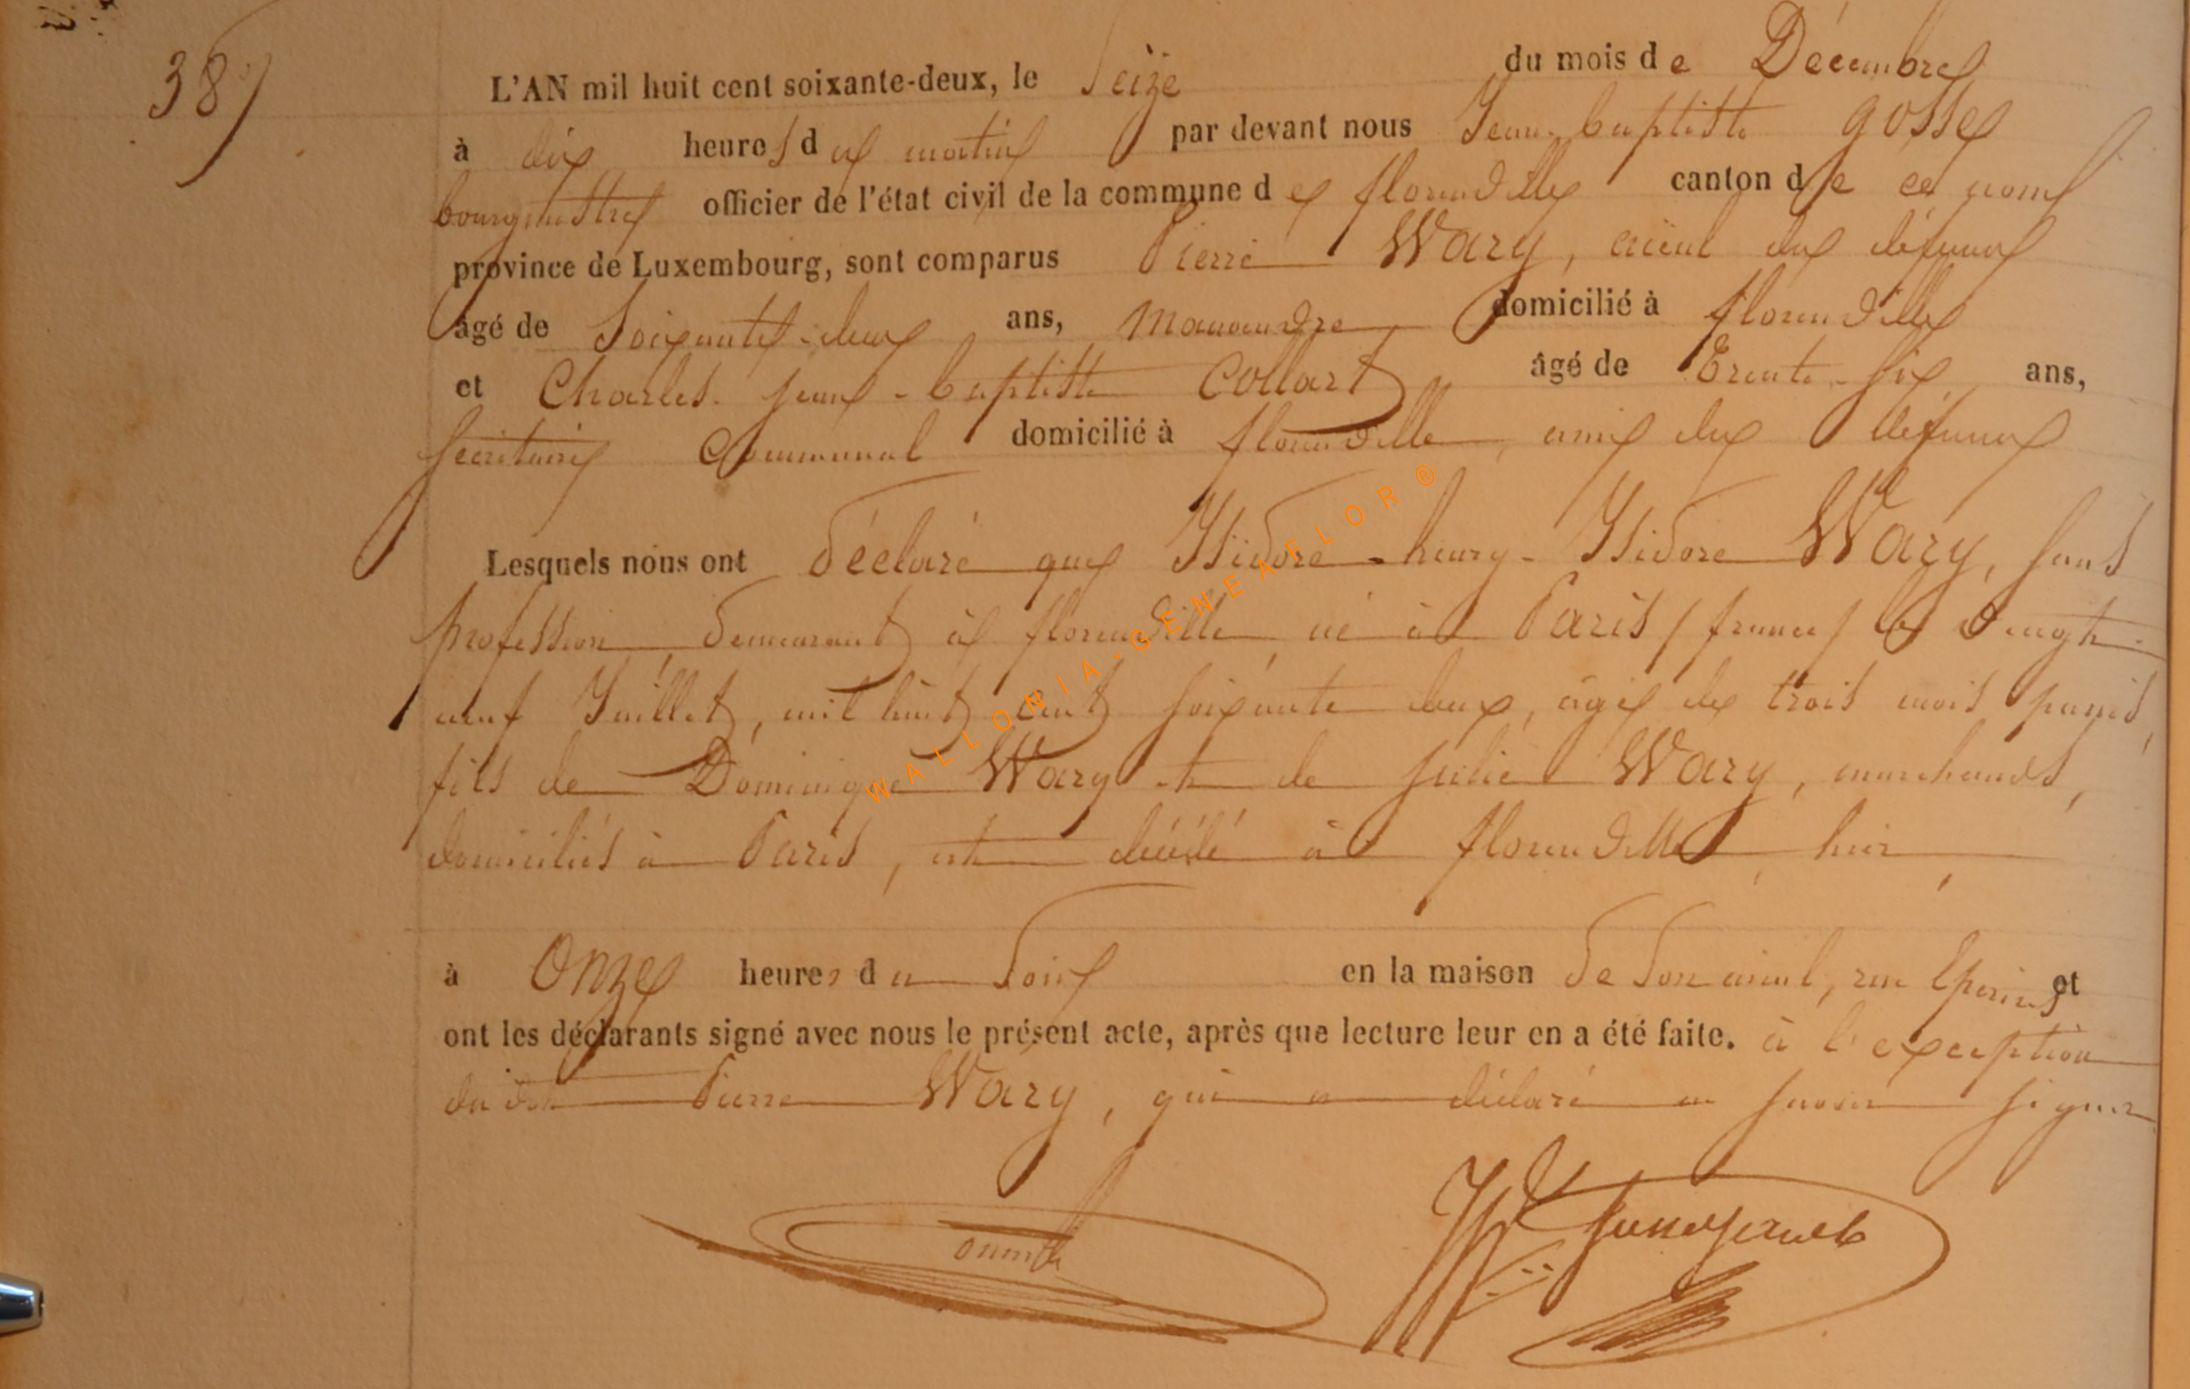 38/
L'AN mil huit cent soixante-deux, le Seize du mois de Décembre
à dix heures du matin par devant nous Jean-baptiste Gosse
bourgmestre officier de l'état civil de la commune de florenville canton de ce nom
province de Luxembourg, sont comparus Pierre Wary, aïeul du défunt
âgé de Soixante-deux ans, manoeuvre domicilié à florenville
et Charles-jean-baptiste Collart âgé de Trente-six ans,
Secrétaire Communal domicilié à florenville, ami du défunt
Lesquels nous ont déclaré que Isidore-henry-Isidore Wary, sans
profession, demeurant à florenville, né à Paris / france / le vingt-
neuf Juillet, mil huit cent soixante deux, âgé de trois mois passés,
fils de Dominique Wary et de Julie Wary, marchands,
domiciliés à Paris, est décédé à florenville, hier,
à Onze heures du Soir en la maison de son aïeul, rue et
ont les déclarants signé avec nous le présent acte, après que lecture leur en a été faite. à l'exception
du dit Pierre Wary, qui a déclaré ne savoir signer
WALLONIA-GENEAFLOR®